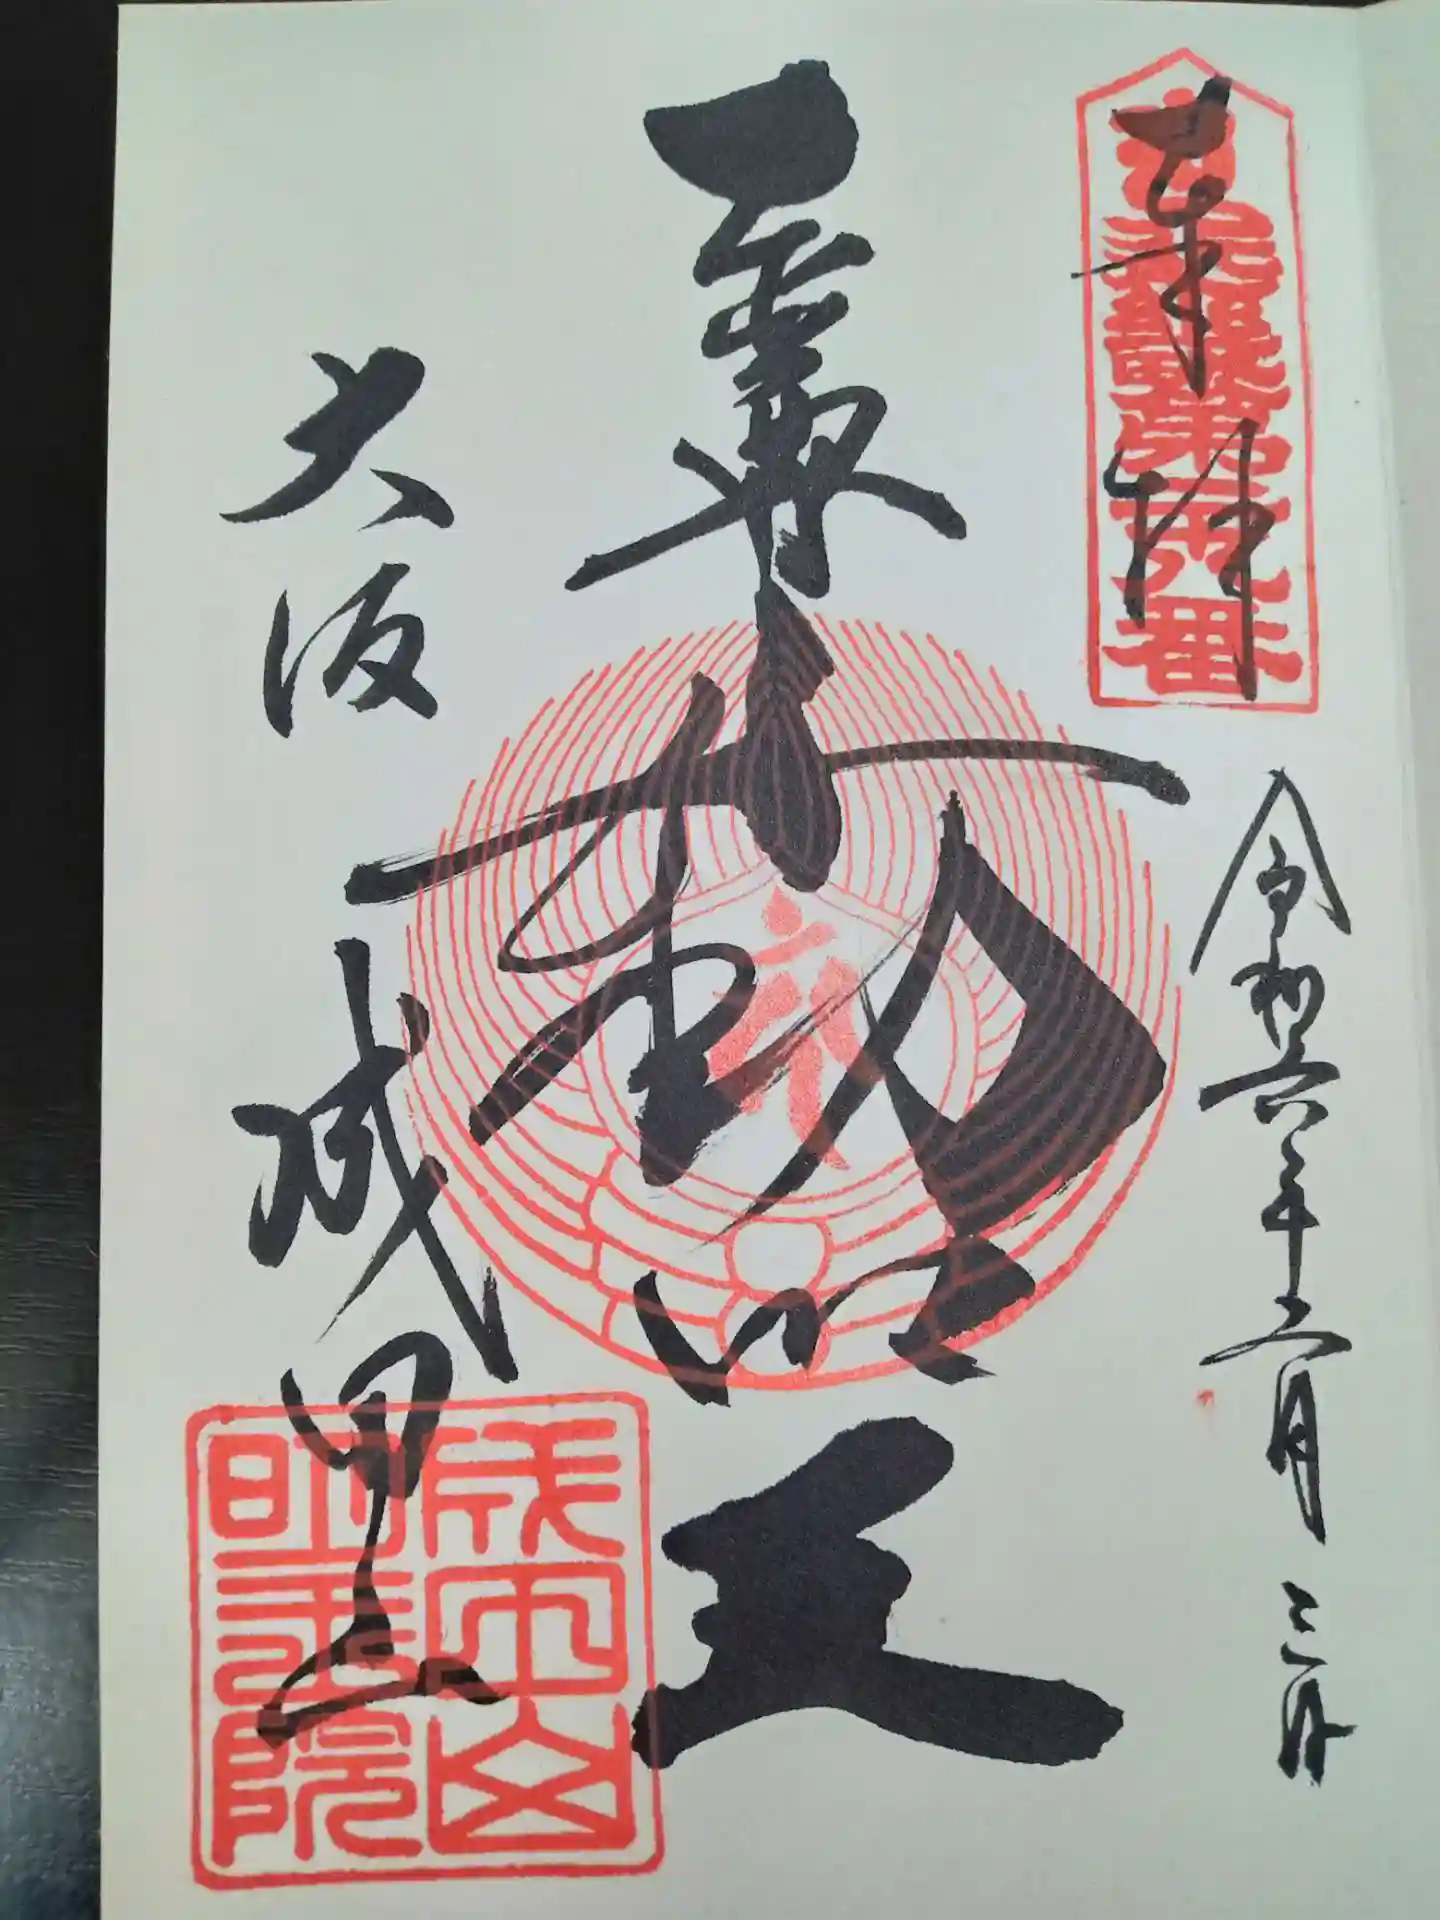 奉拝
令和六年十二月三日
不動明王
大阪 成田山
成田山
明王院